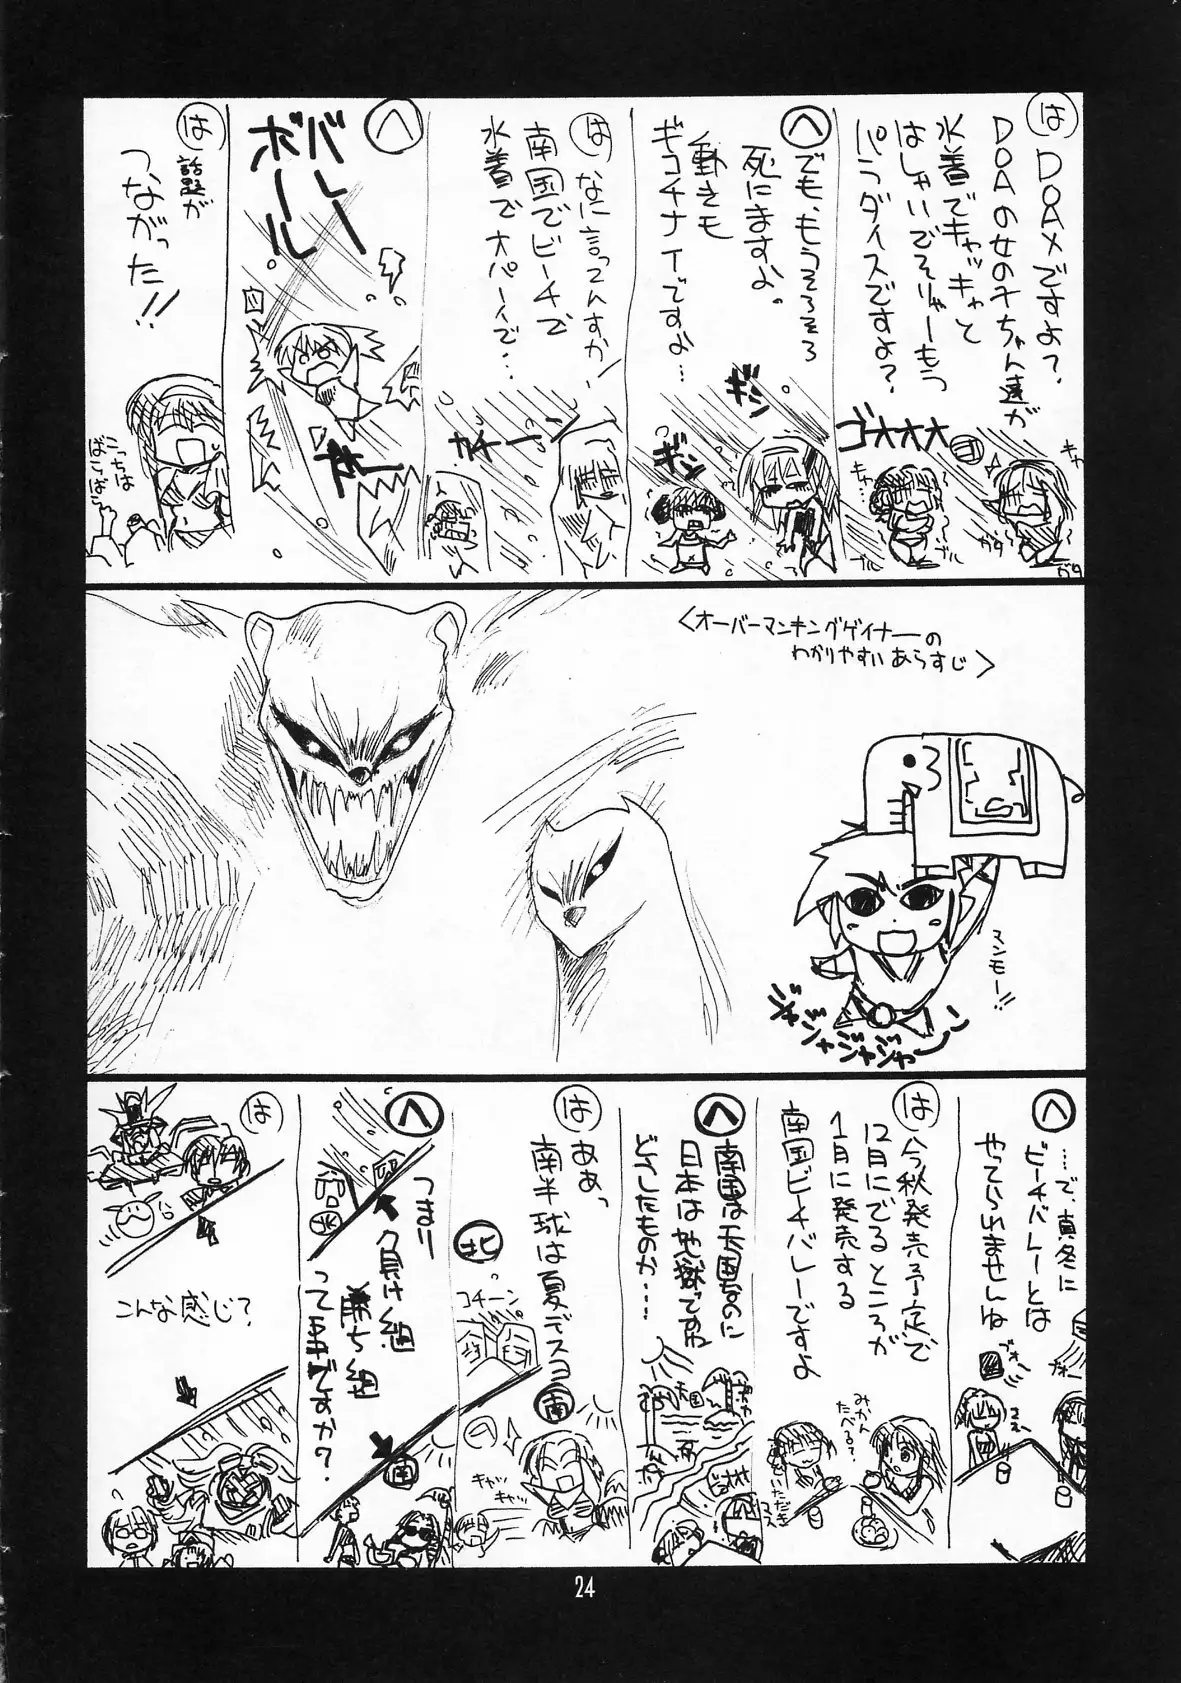 は
DOAXですよ?
DOAの女のチちゃん達が
水着でキャッキャと
はしゃいでそりゃーもう
パラダイスですよ?
キャ
キャ…
ガタ
ブル
へ
でも、もうそろそろ
死にますよ。
動きも
ギコチナイですよ…
ギシ
ギシ
は
なに言ってんすか!
南国でビーチで
水着で大パーイで…
カチーン
へ
バレー
ボール
は
話題が
つながった!!
こっちは
ばこばこ
<オーバーマンキングゲイナーの
わかりやすいあらすじ>
マンモー!!
ジャンジャジャジャーン
へ
……で、真冬に
ビーチバレーとは
やってられませんね
ブォー
ブォー
は
今秋発売予定で
12月にでるところが
1月に発売する
南国ビーチバレーですよ
みかん
たべる?
いただき
マス
へ
南国は天国なのに
日本は地獄ですね
どうしたものか……
天国
は
ああっ
南半球は夏デスヨ
北
コチーン
南
キャッ
キャッ
へ
つまり
負け組
勝ち組
ってコトですか?
北
南
は
こんな感じ?
24